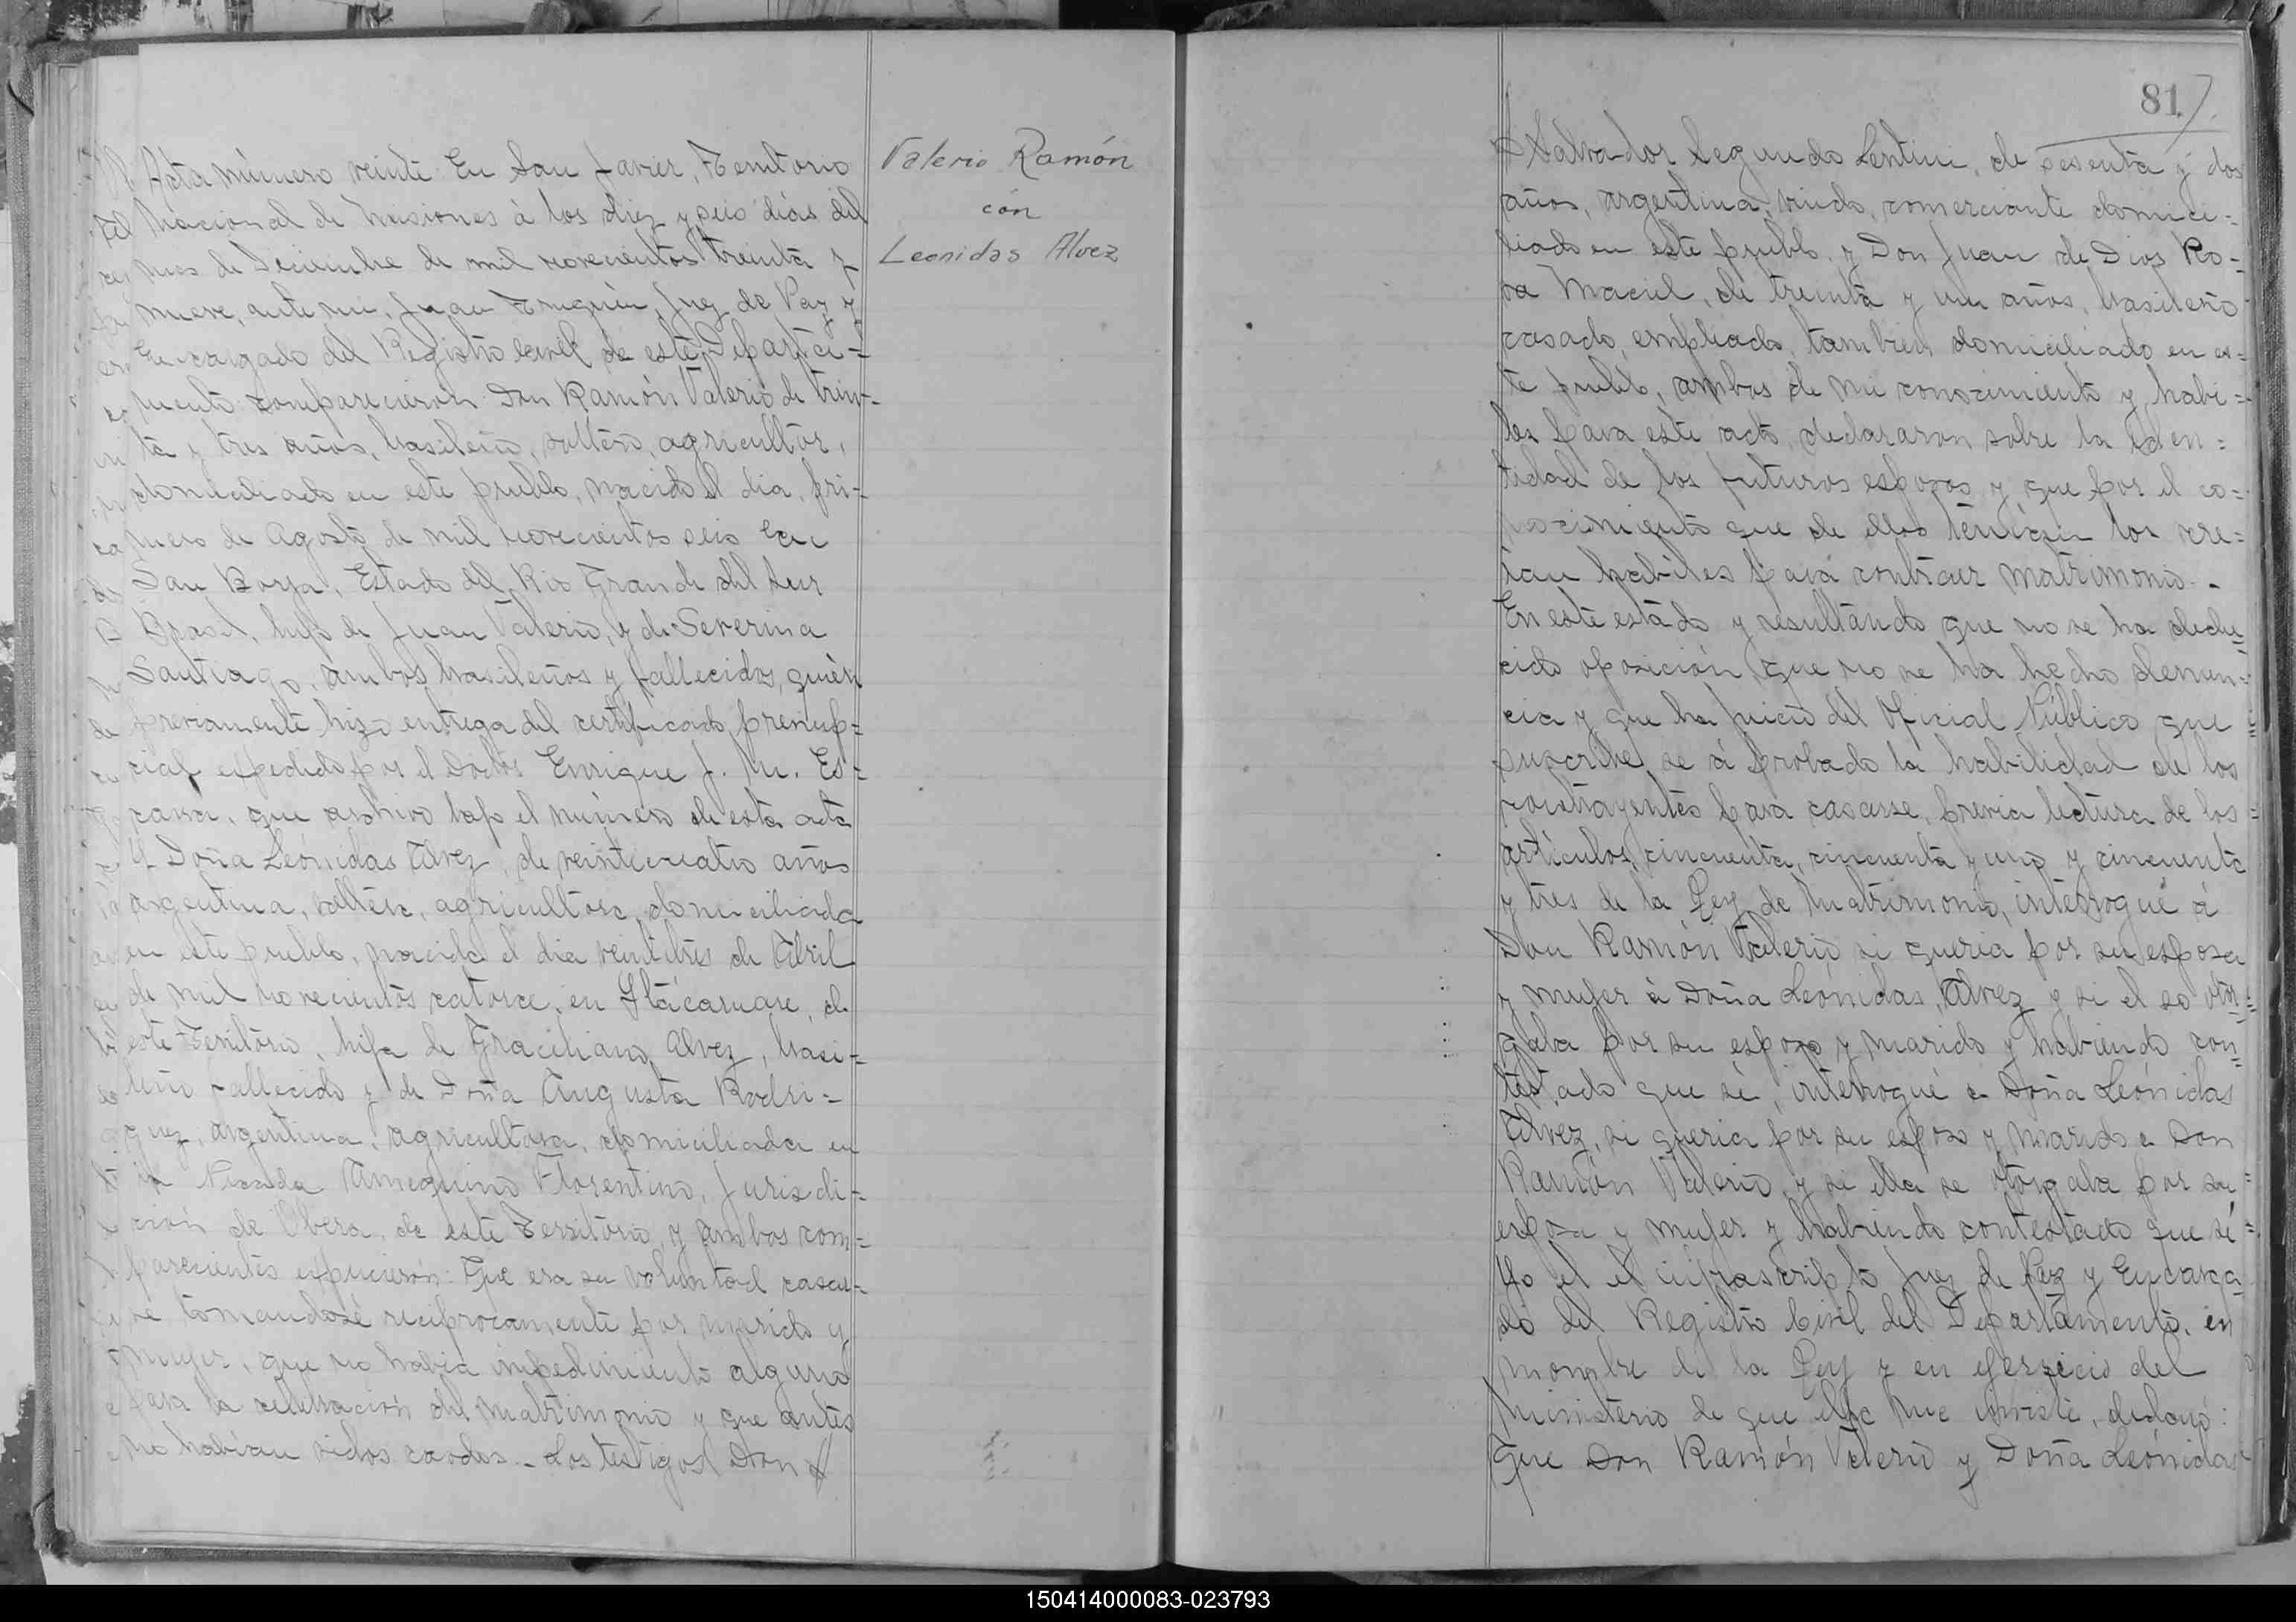 Acta número veinte En San Javier, Territorio
Nacional de Misiones á los diez y seis días del
mes de Diciembre de mil novecientos treinta y
nueve, ante mi, Juan Juez de Paz y
Encargado del Registro Civil de este Departa-
mento comparecieron Don Ramón Valerio de trein-
ta y tres años, brasileño, soltero, agricultor,
domiciliado en este pueblo, nacido el dia, pri-
mero de Agosto de mil novecientos seis En
San Borja, Estado del Rio Grande del Sur
Brasil, hijo de Juan Valerio, y de Severina
Santiago, ambos brasileños y fallecidos, quién
previamente hizo entrega del certificado prenup-
cial expedido por el Doctor Enrique J. M. Es-
que archivo bajo el número de esta acta
Y Doña Leónidas Alvez, de veinticuatro años
argentina, soltera, agricultora, domiciliada
en este pueblo, nacida el dia veintitres de Abril
de mil novecientos catorce, en Itácaruare, de
este Territorio, hija de Graciliano Alvez, brasi-
leño fallecido y de Doña Augusta Rodri-
guez, argentina, agricultora, domiciliada en
la Picada Ameguino Florentino, Jurisdi-
ción de Obera, de este Territorio, y ambos com-
parecientes expucieron: Que era su voluntad casar-
se tomandosé reciprocamente por marido y
mujer, que no habia impedimiento alguno
para la celebración del matrimonio y que antes
no habian sidos casados. - Los testigos Don
Valerio Ramón
con
Leonidas Alvez
81
Salvador Segundo Lentini, de sesenta y dos
años, argentino, viudo, comerciante domici-
liado en este pueblo, y Don Juan de Dios Ro-
sa Maciel, de treinta y un años, brasileño
casado, empleado, tambien domiciliado en es-
te pueblo, ambos de mi conocimiento y habi-
les para este acto, declararon sobre la iden-
tidad de los futuros esposos y que por el co-
nocimiento que de ellos tenían los cre-
ian habiles para contraer matrimonio. -
En este estado y resultando que no se ha dedu-
cido oposición, que no se ha hecho denun-
cia y que ha juicio del Oficial Público que
suscribe, se á probado la habilidad de los
contrayentes para casarse, previa lectura de los
artículos, cincuenta, cincuenta y uno y cincuenta
y tres de la Ley de Matrimonio, interrogué á
Don Ramón Valerio si queria por su esposa
y mujer á Doña Leónidas, Alvez y si el se otor-
gaba por su esposo y marido y habiendo con-
testado que sí, interrogué a Doña Leónidas
Alvez, si queria por su esposo y marido a Don
Ramón Valerio y si ella se otorgaba por su
esposa y mujer y habiendo contestado que sí
Yo el el infrascripto Juez de Paz y Encarga-
do del Registro Civil del Departamento, en
nombre de la Ley y en ejersicio del
ministerio de que ella me inviste, declaró:
Que Don Ramón Valerio y Doña Leónidas
150414000083-023793